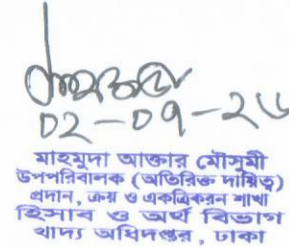 ০২-০৭-২৬
মাহমুদা আক্তার মৌসুমী
উপপরিচালক (অতিরিক্ত দায়িত্ব)
প্রদান, ক্রয় ও একত্রিকরন শাখা
হিসাব ও অর্থ বিভাগ
খাদ্য অধিদপ্তর, ঢাকা